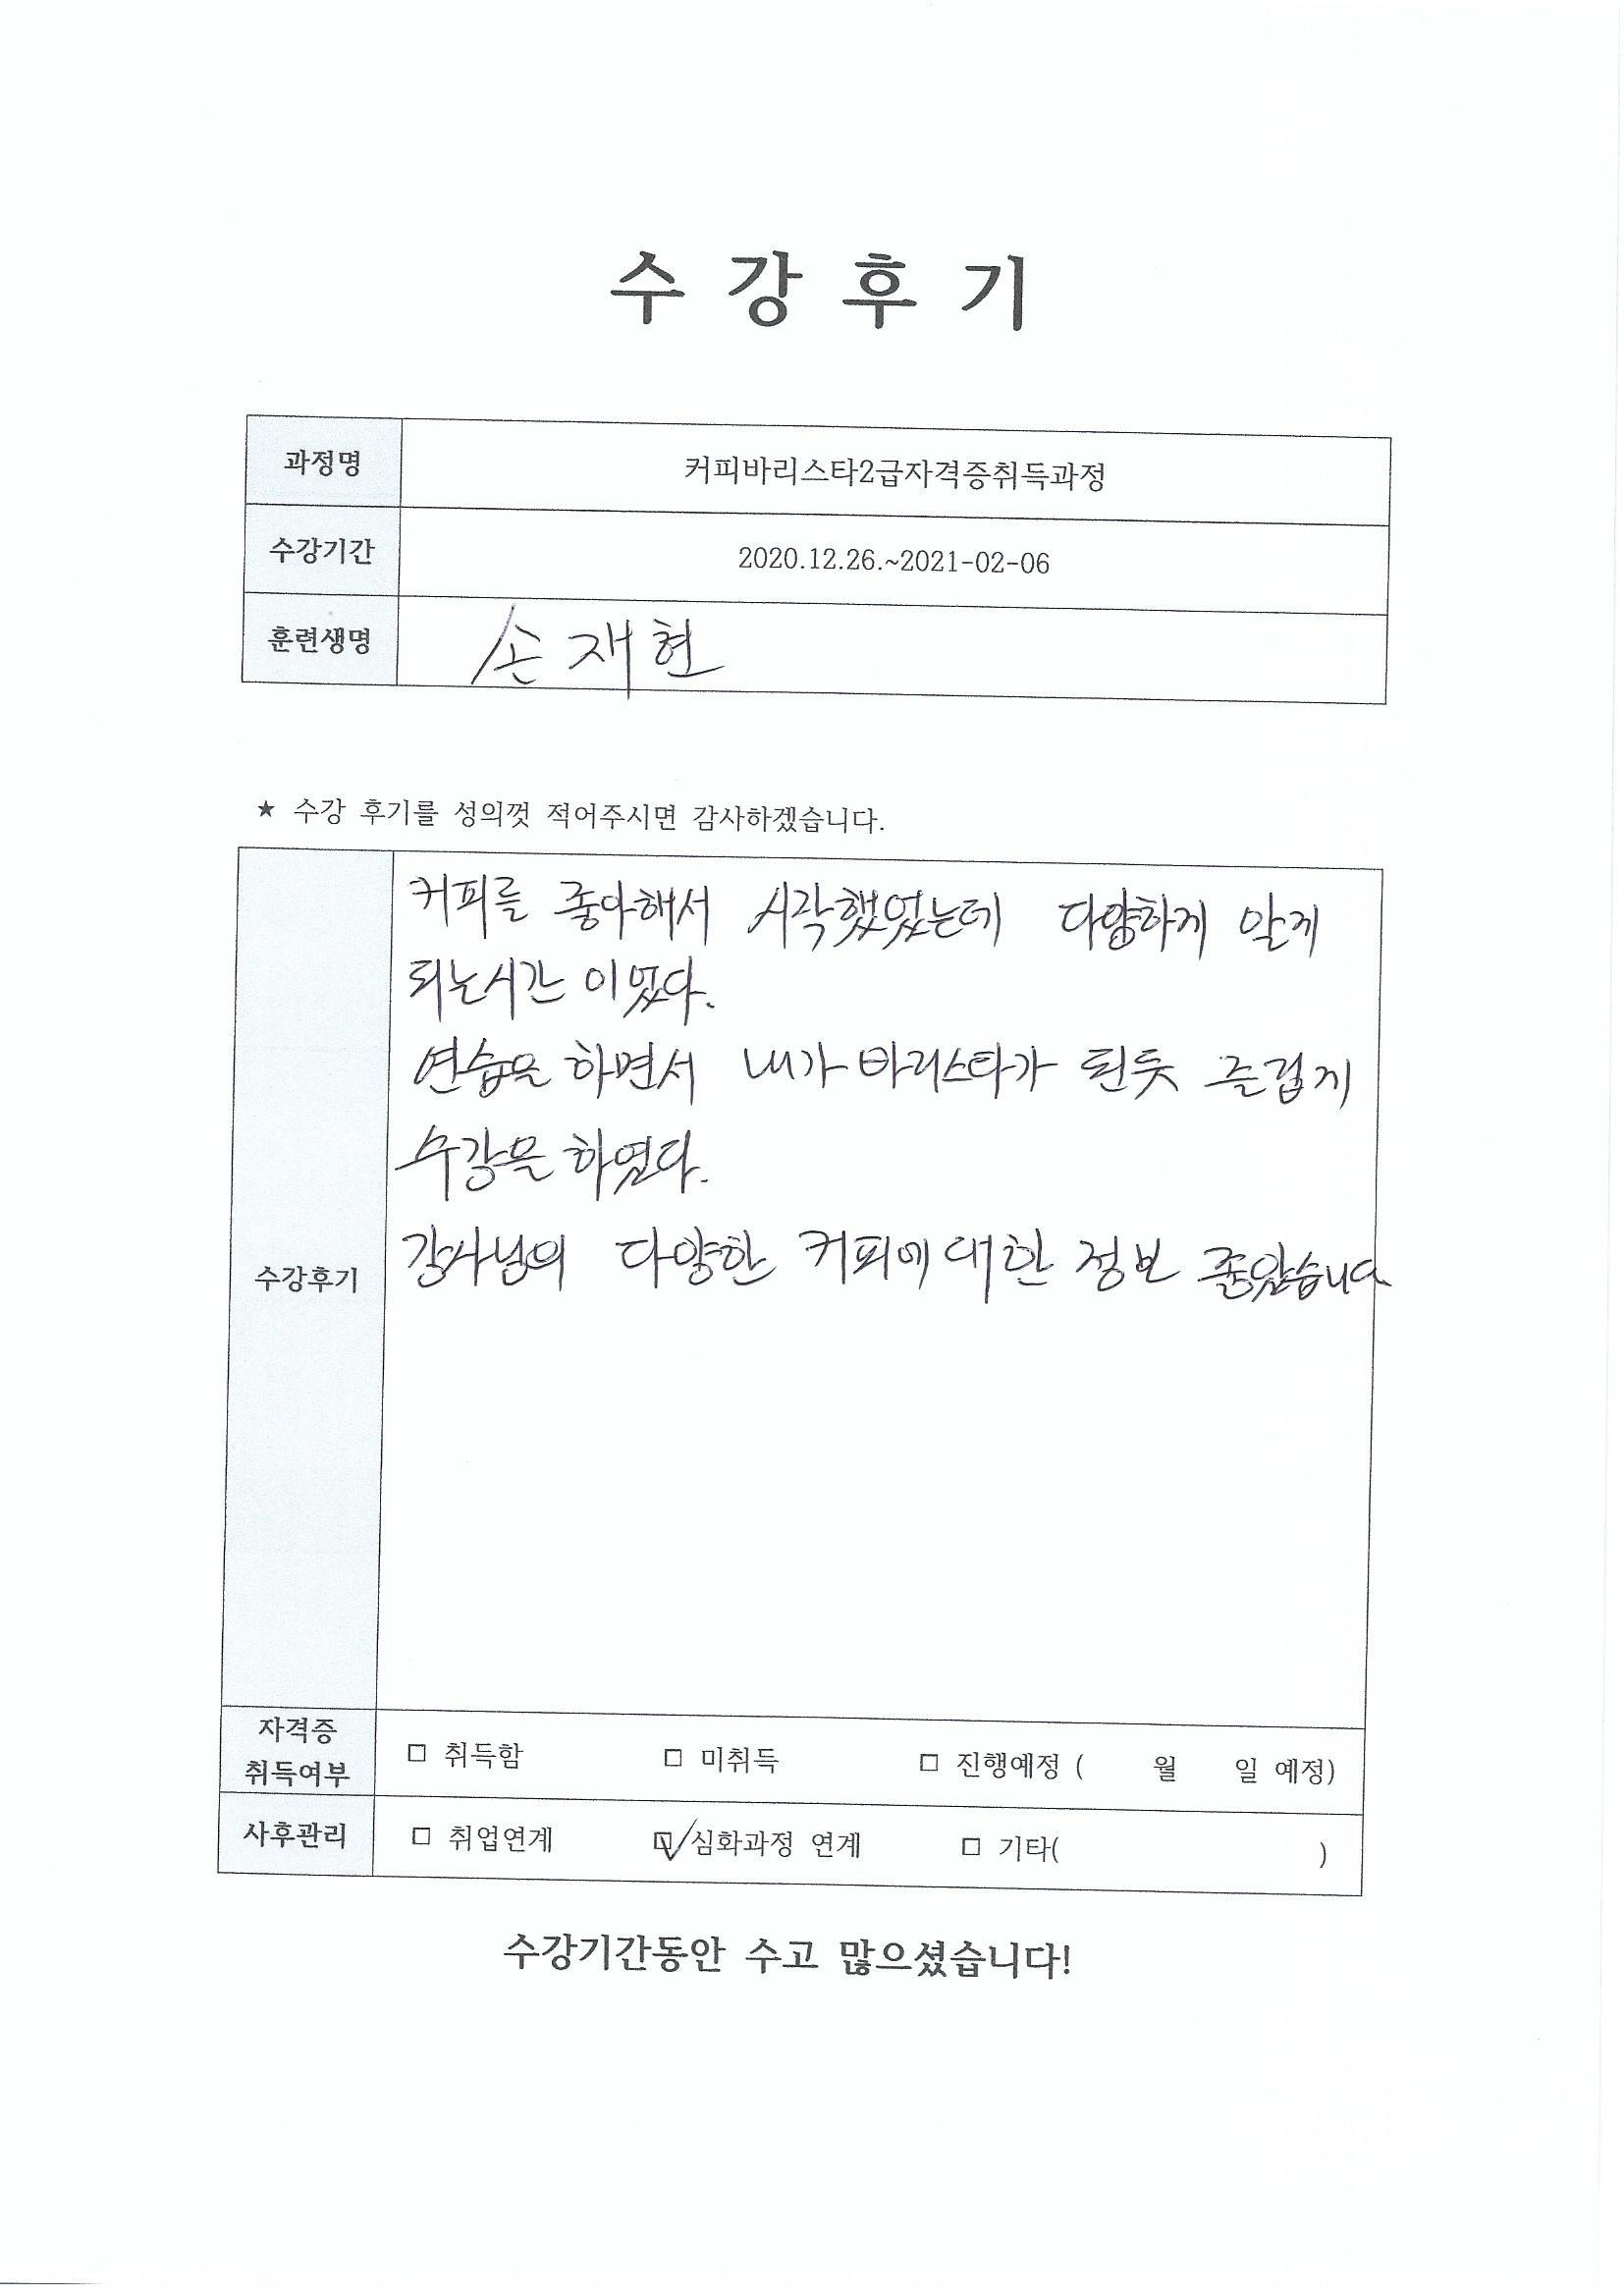 수 강 후 기
과정명 커피바리스타2급자격증취득과정
수강기간 2020.12.26.~2021-02-06
훈련생명 손재현
★ 수강 후기를 성의껏 적어주시면 감사하겠습니다.
커피를 좋아해서 시작했었는데 다양하게 알게
되는시간 이었다.
연습을 하면서 내가 바리스타가 된듯 즐겁게
수강을 하였다.
수강후기
강사님의 다양한 커피에 대한 정보 좋았습니다.
자격증
취득여부
□ 취득함 □ 미취득 □ 진행예정 ( 월 일 예정)
사후관리 □ 취업연계 ☑ 심화과정 연계 □ 기타( )
수강기간동안 수고 많으셨습니다!